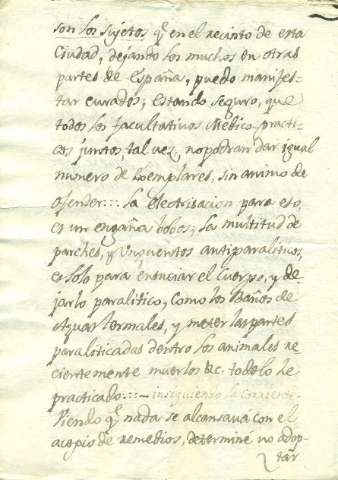 son los sujetos q.e en el recinto de esta
Ciudad, dejando los muchos en otras
partes de España, puedo manifes-
tar curados; estando seguro, que
todos los facultativos Medico-practi-
cos juntos, tal vez, no podran dar igual
numero de Exemplares, sin animo de
ofender::: la electrisacion para esto,
es un engaña bobos; la multitud de
parches, y Unguentos antiparaliticos,
es solo para el Cuerpo, y de-
jarlo paralitico, como los Baños de
Aguas termales, y meter las partes
paraliticadas dentro los animales re-
cientemente muertos &c. todo lo he
practicado:::- insiguiendo la Corriente.
Viendo q.e nada se alcansava con el
acopio de remedios, determiné no adop-
tar